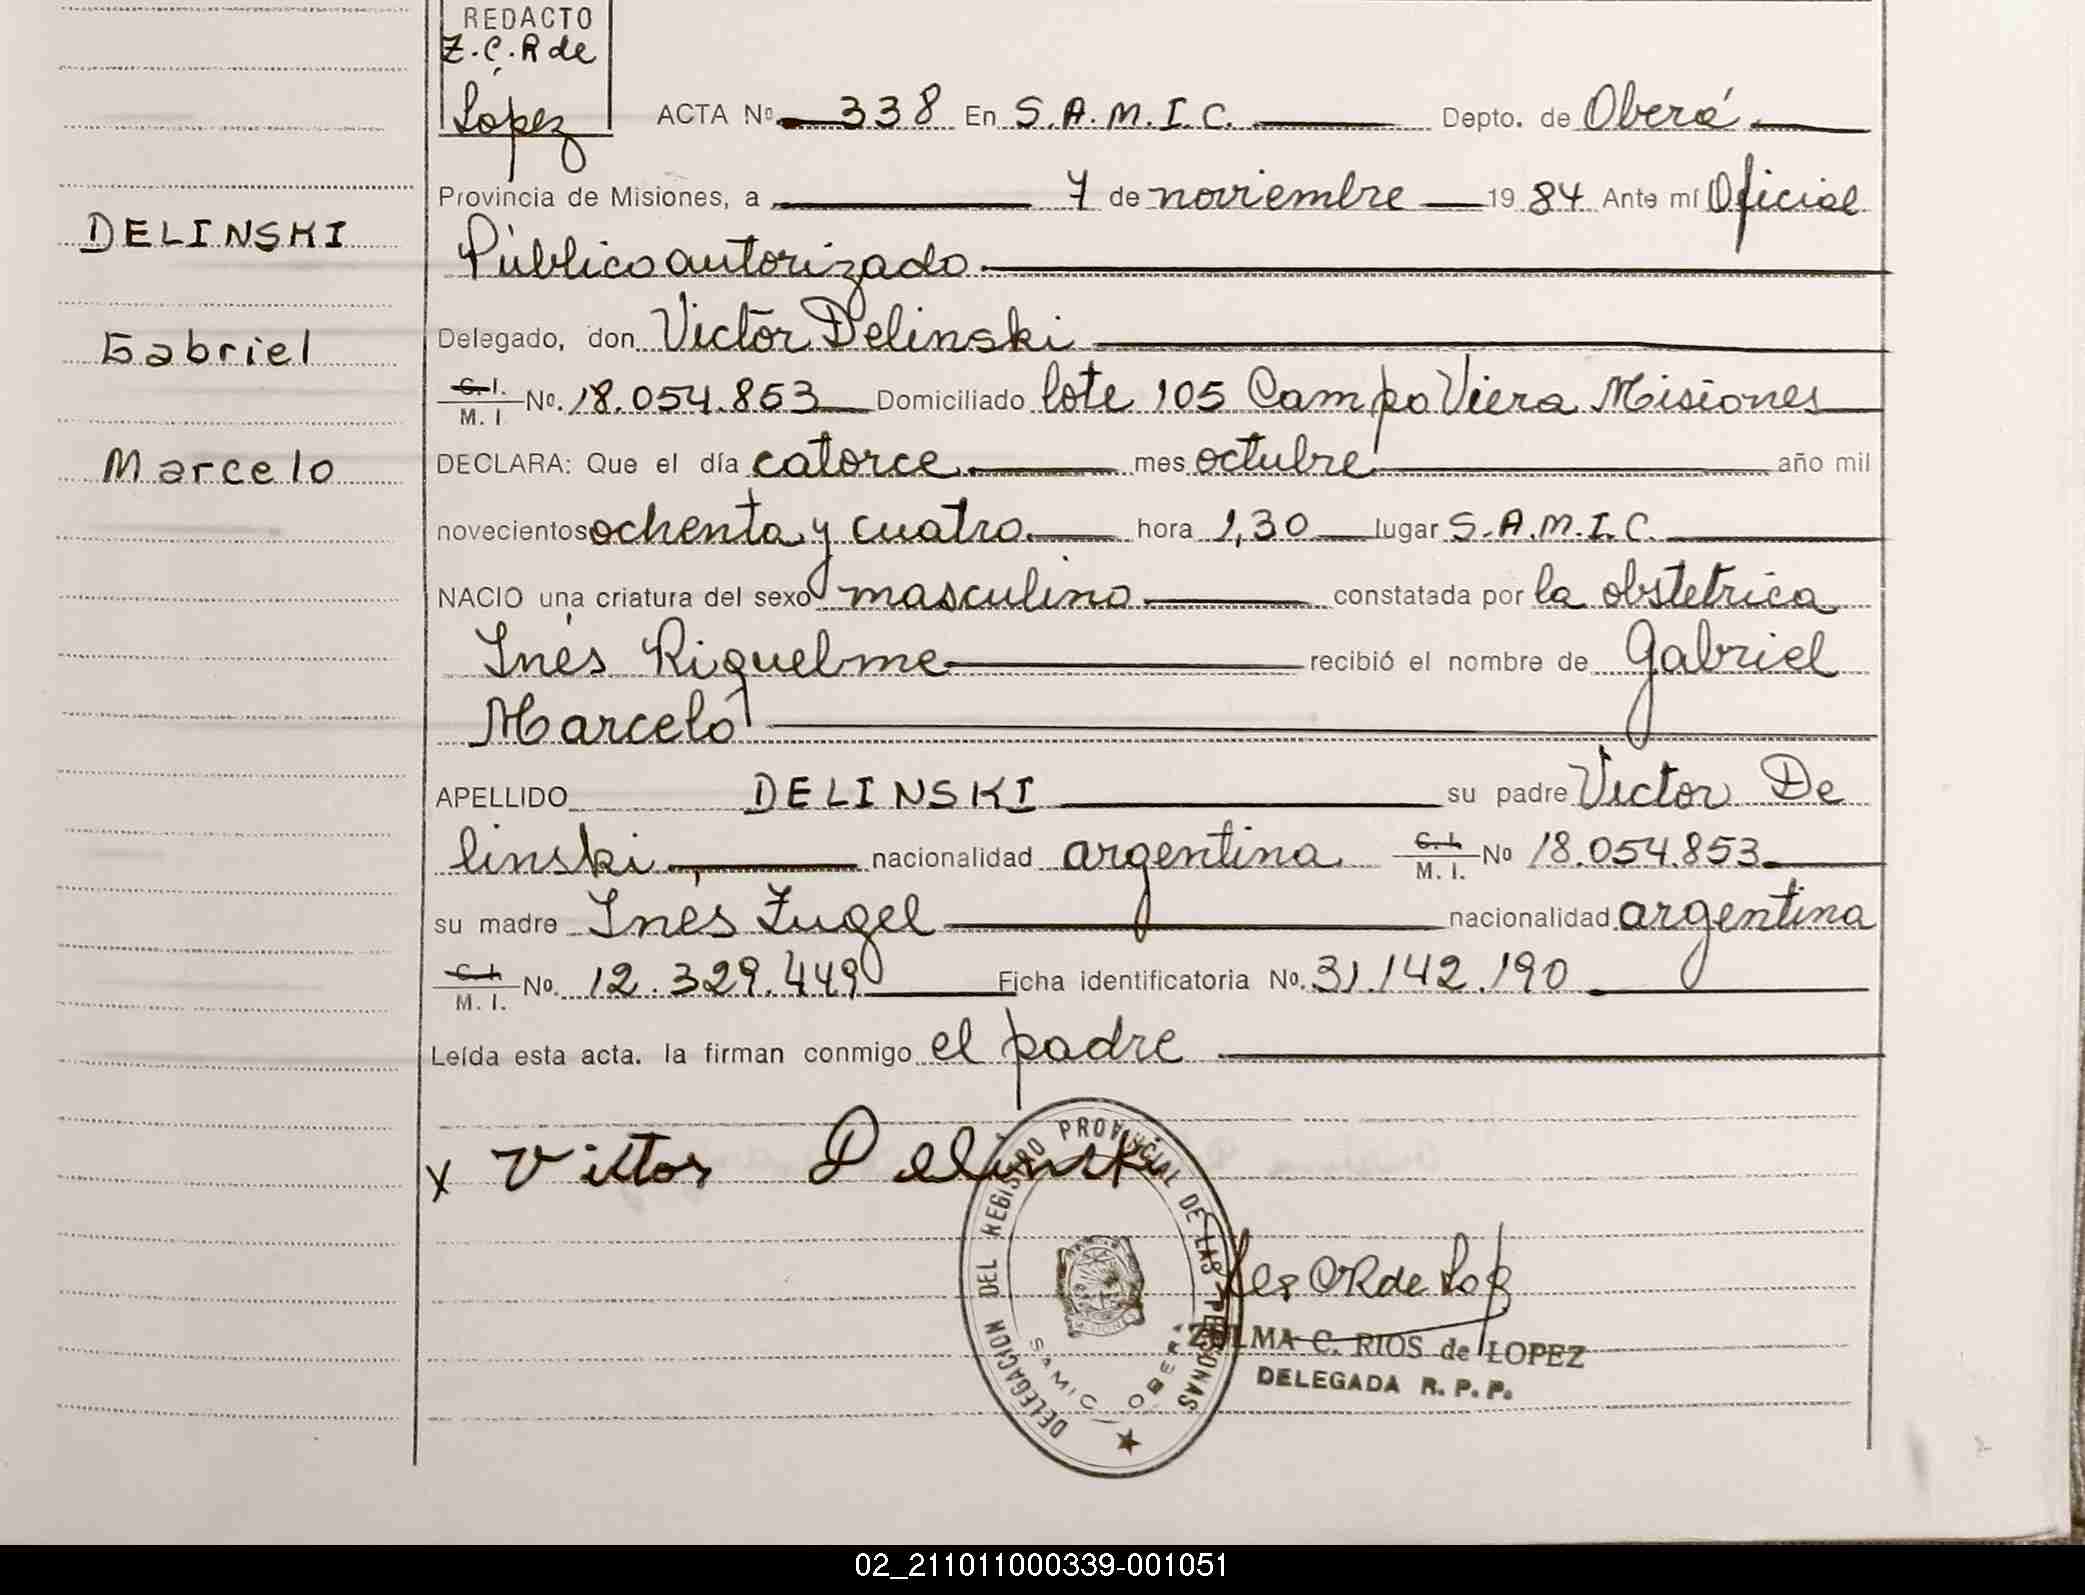 REDACTO
Z.C.R de
Lopez
ACTA Nº 338 En S.A.M.I.C. Depto. de Oberá
Provincia de Misiones, a 7 de noviembre 1984 Ante mí Oficial
Público autorizado
Delegado, don Victor Delinski
C.I. / M.I Nº. 18.054.853 Domiciliado lote 105 Campo Viera Misiones
DECLARA: Que el día catorce mes octubre año mil
novecientos ochenta y cuatro hora 1,30 lugar S.A.M.I.C.
NACIO una criatura del sexo masculino constatada por la obstetrica
Inés Riquelme recibió el nombre de Gabriel
Marcelo
APELLIDO DELINSKI su padre Victor De
linski nacionalidad argentina C.I. / M.I. Nº 18.054.853
su madre Inés Zugel nacionalidad argentina
C.I. / M.I. Nº. 12.329.449 Ficha identificatoria Nº. 31.142.190
Leída esta acta. la firman conmigo el padre
x Victor Delinski
DELINSKI
Gabriel
Marcelo
DELEGACION DEL REGISTRO PROVINCIAL DE LAS PERSONAS
SAMIC OBERA
ZULMA C. RIOS de LOPEZ
DELEGADA R.P.P.
02_211011000339-001051